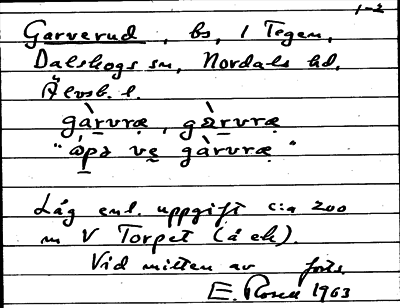 1-2
Garverud, bs, 1 Tegen,
Dalskogs sn, Nordals hd,
Älvsb. l.
gàrvræ, gàrvræ
"ápə və gàrvræ"
Låg enl. uppgift c:a 200
m V Torpet (å ek).
Vid mitten av forts.
E. Rosell 1963